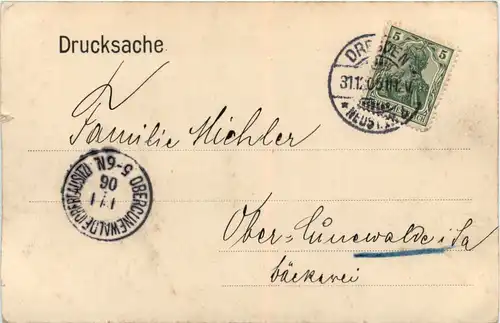 Drucksache
5 5
DRESDEN
31.12.05.11-12V.
* NEUST.
Familie Michler
OBERCUNEWALDE (OBERLAUSITZ)
1/1
06
5-6N.
Ober-Cunewalde i/Sa
bäckerei